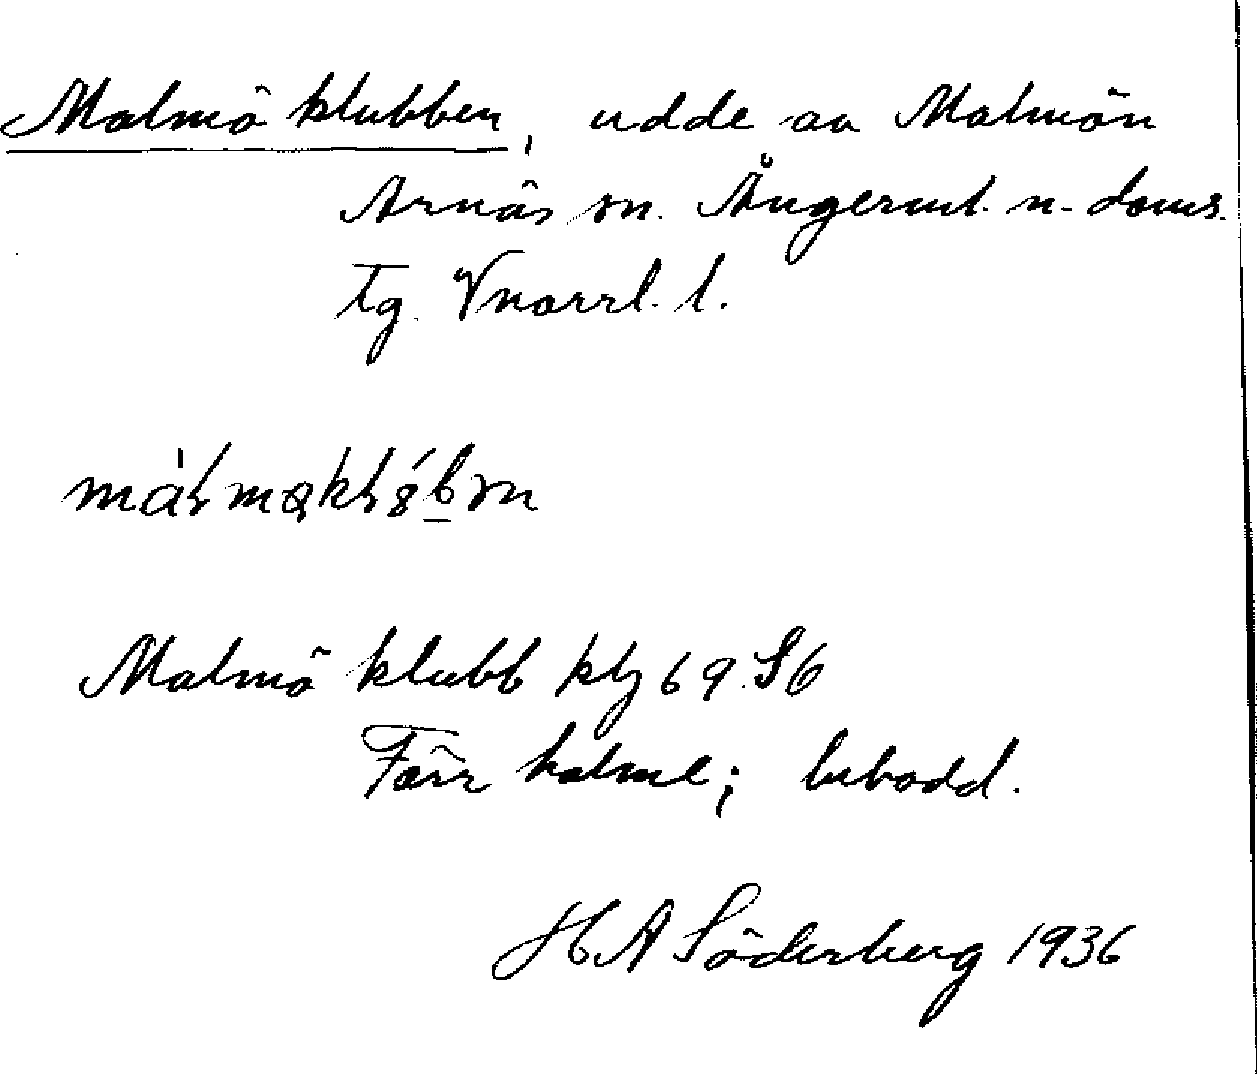 Malmö klubben, udde av Malmön
Arnäs sn. Ångerml. n. doms.
tg. Vnorrl. l.
Malmö klubb klz 69 S6
Förr holme; bebodd.
H A Söderberg 1936